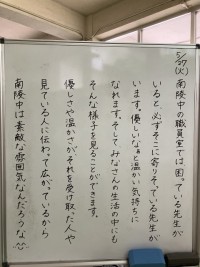 5/27(火)
南陵中の職員室では、困っている先生が
いると必ずそこに寄りそっている先生が
います。優しいなぁと温かい気持ちに
なれます。そしてみなさんの生活の中にも
そんな様子を見ることができます。
優しさや温かさがそれを受け取った人や
見ている人に伝わって広がっているから
南陵中は素敵な雰囲気なんだろうな^^